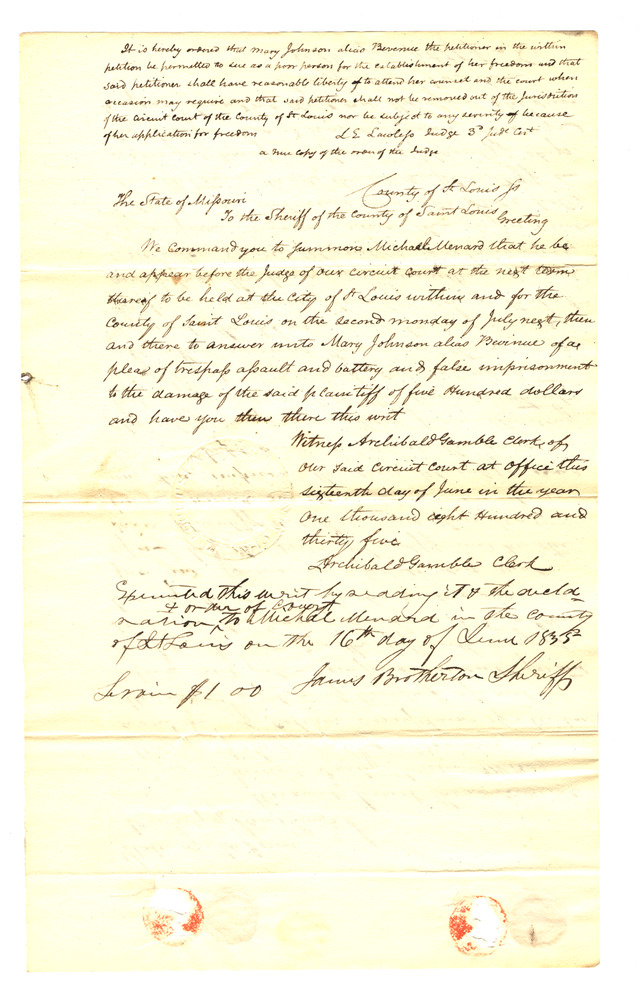 It is hereby ordered that Mary Johnson alias Bevenue the petitioner in the within
petition be permitted to sue as a poor person for the establishment of her freedom and that
said petitioner shall have reasonable liberty of to attend her counsel and the court when
occasion may require and that said petitioner shall not be removed out of the Jurisdiction
of the circuit court of the County of St Louis nor be subject to any severity of because
of her application for freedom L E Lawless Judge 3d Judl Cirt
a true copy of the order of the Judge
County of St Louis Ss
The State of Missouri
To the Sheriff of the County of Saint Louis Greeting
We Command you to summon Michael Menard that he be
and appear before the Judge of our circuit court at the next term
thereof to be held at the City of St Louis within and for the
County of Saint Louis on the second monday of July next, then
and there to answer unto Mary Johnson alias Bevinue of a
plea of trespass assault and battery and false imprisonment
to the damage of the said plaintiff of five Hundred dollars
and have you then there this writ
Witness Archibald Gamble Clerk of
our said Circuit Court at office this
sixteenth day of June in the year
One thousand eight Hundred and
thirty five
Archibald Gamble Clerk
Executed this writ by reading it & the decla-
+ order of Court
ration ^ to Michal Menard in the County
of St Louis on the 16th day of June 1835
Servin $1 00 James Brotherton Sheriff